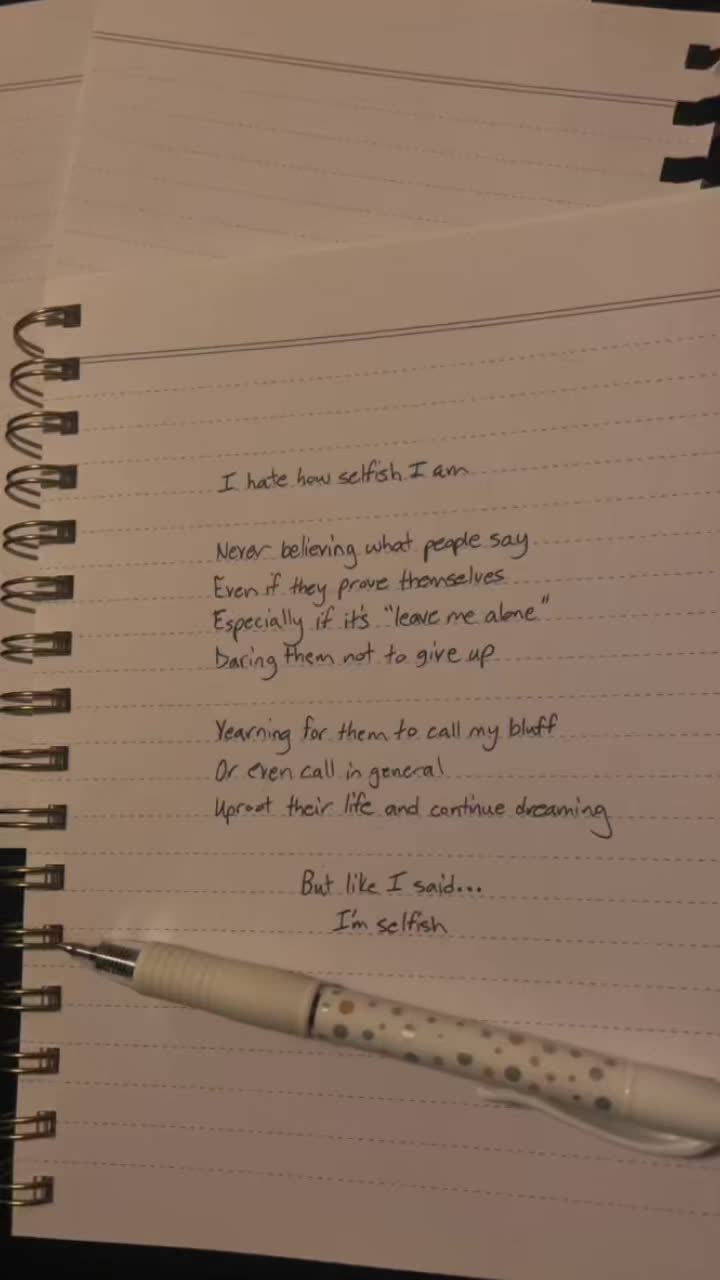 I hate how selfish I am
Never believing what people say
Even if they prove themselves
Especially if it's "leave me alone"
Daring them not to give up
Yearning for them to call my bluff
Or even call in general
Uproot their life and continue dreaming
But like I said...
I'm selfish